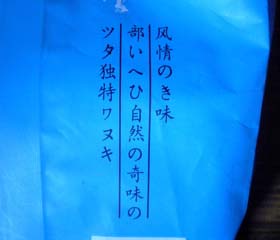 风情のき味
部いへひ自然の奇味の
ツタ独特ワヌキ